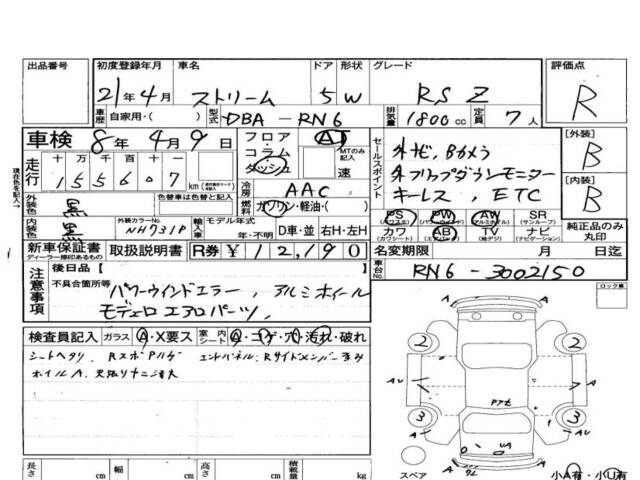 出品番号 初度登録年月 車名 ドア 形状 グレード 評価点
21年 4月 ストリーム 5 W RSZ R
車歴 自家用・( ) 型式 DBA-RN6 排気量 1800cc 定員 7人
車検 8年 4月 9日 フロア・コラム・ダッシュ AT MTのみ記入 速
セールスポイント 外ナビ、Bカメラ
外フリップダウンモニター
キーレス, ETC
[外装] B
[内装] B
現在色を記入→
走行 十万 万 千 百 十 一
155607 km
冷房 AAC
燃料 ガソリン・軽油・( )
外装色 黒 色替車は色替と記入
内装色 黒 外装カラーNo. NH731P 輸入車 モデル年式 年・不明 D車・並 右H・左H
PS (パワステ) PW (パワーウインド) AW (アルミホイル) SR (サンルーフ)
カワ (カワシート) AB (エアバック) TV (純デジ) ナビ (ナビゲーション)
純正品のみ丸印
新車保証書 ディーラー捺印あるもの 取扱説明書 R券 ¥12,190 名変期限 月 日迄
車台No. RN6-3002150
注意事項 後日品【 】
不具合箇所等 パワーウインドエラー, アルミホイール
モデューロ エアロパーツ,
ロック集
検査員記入 ガラス A・X要ス 室内シート A・コゲ・穴・汚れ・破れ
シートヘタリ
ホイルA.
2 2
A AU A
3 3
AU A
UA
A
スペア 小A有・小U有
長さ cm 幅 cm 高さ cm 積載量 kg